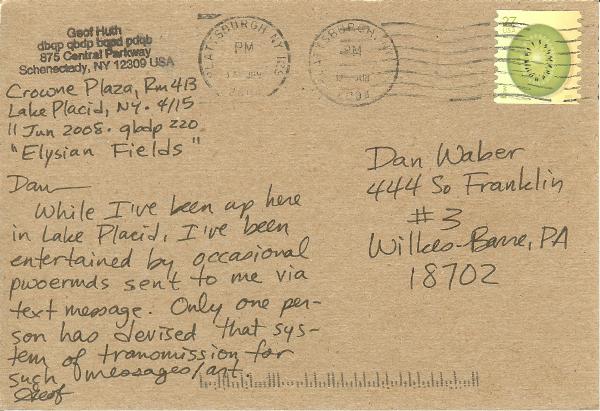 Geof Huth
dbqp qbdp bqpd pdqb
875 Central Parkway
Schenectady, NY 12309 USA
Crowne Plaza, Rm 413
Lake Placid, NY. 4/15
11 Jun 2008. qbdp 220
"Elysian Fields"
Dan—
While I've been up here
in Lake Placid, I've been
entertained by occasional
pwoermds sent to me via
text message. Only one per-
son has devised that sys-
tem of transmission for
such messages/art.
Geof
PLATTSBURGH NY
PM
PLATTSBURGH NY
PM
2008
27
Dan Waber
444 So Franklin
#3
Wilkes-Barre, PA
18702